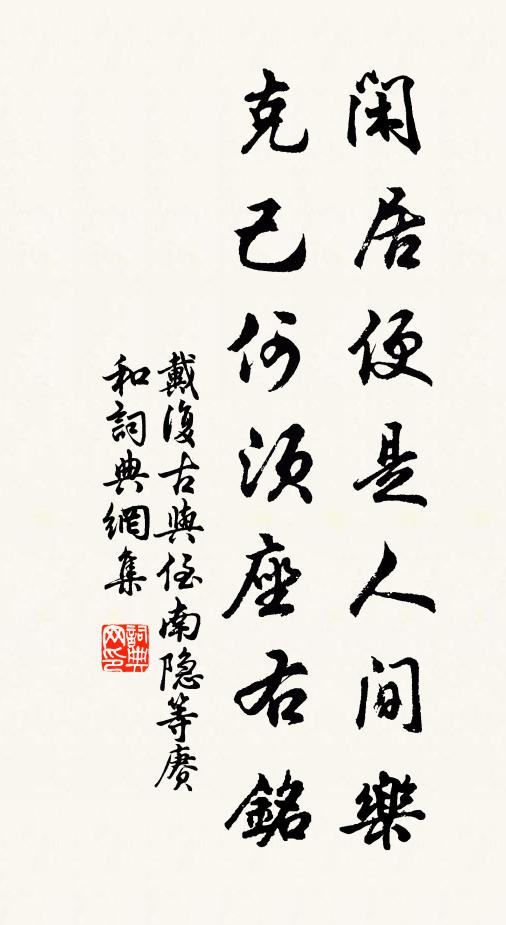 閑居便是人間樂
克己何須座右銘
戴復古與侄南隐等賡
和詞典網集
詞典网印